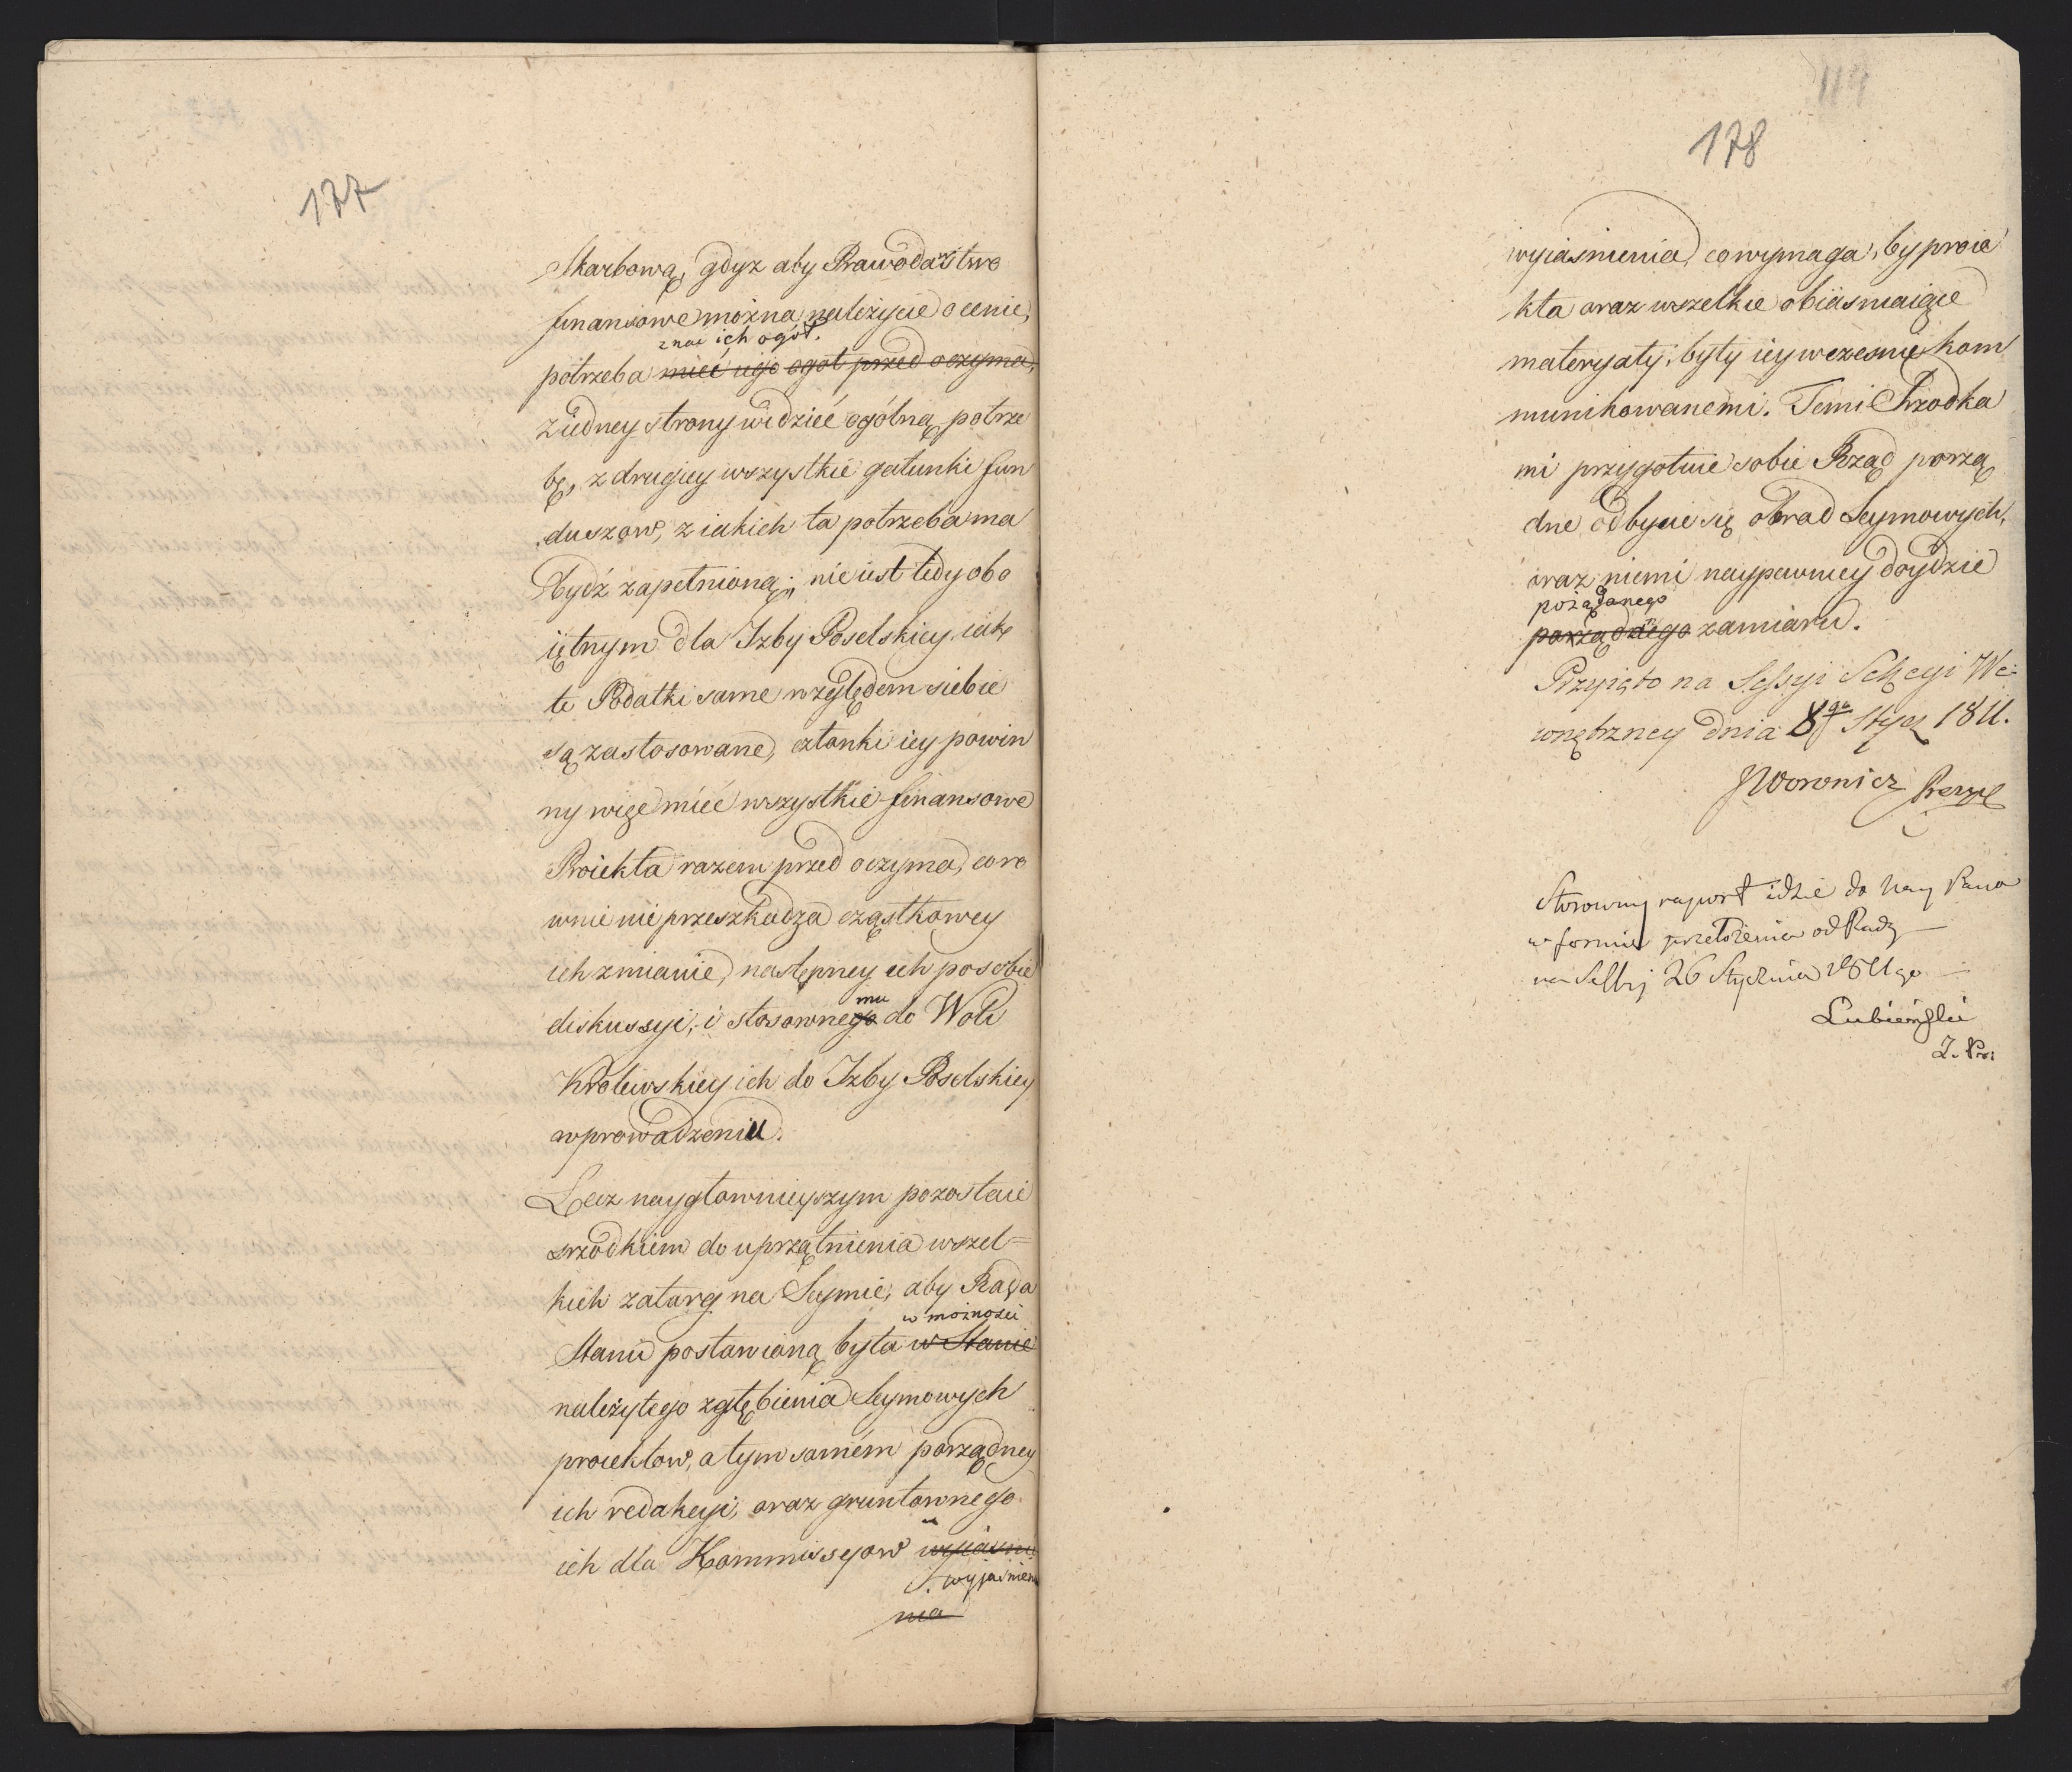 177
Skarbową, gdyz aby Prawodawstwo
finansowe można należycie ocenić,
znać ich ogół.
potrzeba mieć iego ogół przed oczyma,
z iedney strony widzieć ogólną potrze
bę, z drugiey wszystkie gatunki fun
duszow, z iakich ta potrzeba ma
bydź zapełnioną; nie iest tedy obo
iętnym dla Izby Poselskiey, iak
te Podatki same względem siebie
są zastosowane, członki iey powin
ny więc mieć wszystkie finansowe
Proiekta razem przed oczyma, co ro
wnie nie przeszkadza cząstkowey
ich zmianie, następney ich po sobie
mu
diskussyi, i stosownego do Woli
Krolewskiey ich do Izby Poselskiey
wprowadzeniu.
Lecz naygłownieyszym pozostaie
srzodkiem do uprzątnienia wszel=
kich zatarg na Seymie, aby Rada
w możności
Stanu postawioną była w Stanie
należytego zgłębienia Seymowych
proiektow, a tym samém porządney
ich redakcyi, oraz gruntownego
ich dla Kommissyow wyiaśnie
wyjaśnienia
nia
119
178
wyiasnienia, co wymaga, by proie
kta oraz wszelkie obiasniaiące
materyały, były iey wczesnie kom
munikowanemi. Temi Srzodka
mi przygotuie sobie Rząd porzą
dne odbycie się obrad Seymowych,
oraz niemi naypewniey doydzie
pożądanego
porządnego zamiaru.
Przyięto na Sessyi Sekcyi We=
wnętrzney dnia 8go Stycz 1811.
JWoronicz Prezyd
Stosowny raport idzie do Nay Pana
w formie przełożenia od Rady
na Sessyi 26 Stycznia 1811go
Lubieński